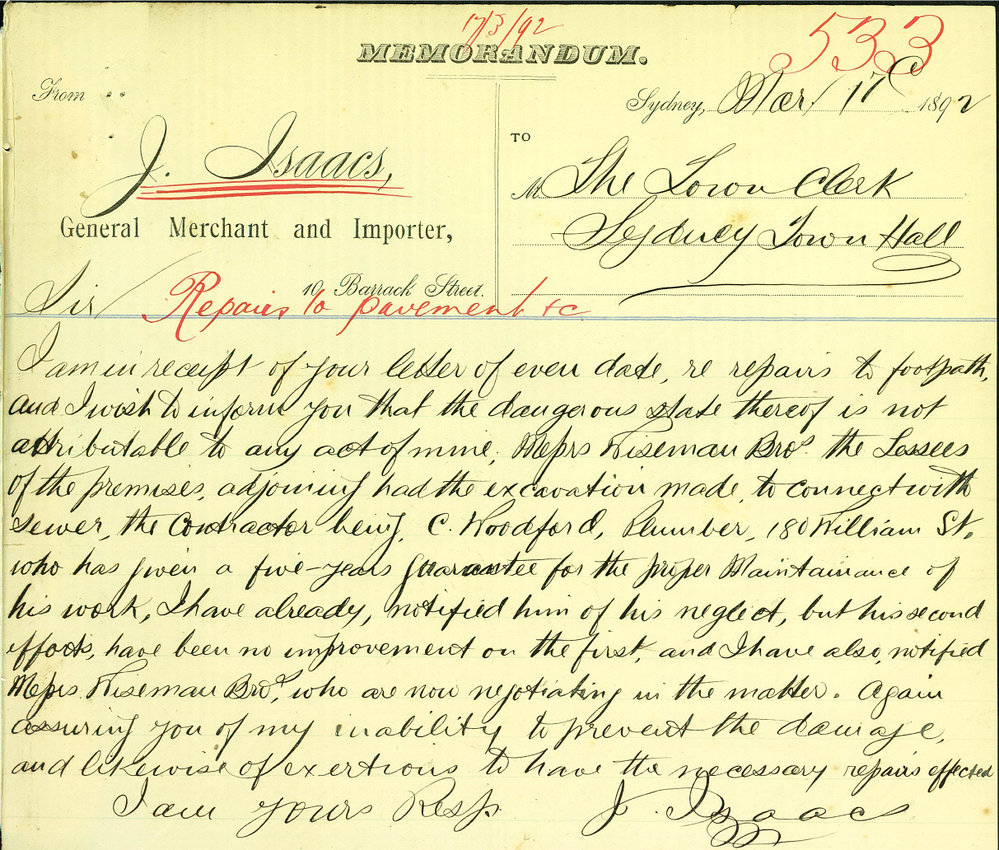 17/3/92
533
MEMORANDUM.
From
Sydney, Mar 17 1892
J. Isaacs,
General Merchant and Importer,
10, Barrack Street.
TO
M The Town Clerk
Sydney Town Hall
Sir
Repairs to pavement &c
I am in receipt of your letter of even date, re repairs to footpath,
and I wish to inform you that the dangerous state thereof is not
attributable to any act of mine, Messrs Wiseman Bros. the Lessees
of the premises, adjoining had the excavation made, to connect with
sewer, the Contractor being, C. Woodford, Plumber, 180 William St.
who has given a five-years guarantee for the proper Maintainance of
his work, I have already, notified him of his neglect, but his second
efforts, have been no improvement on the first, and I have also, notified
Messrs. Wiseman Bros, who are now negotiating in the matter. Again
assuring you of my inability to prevent the damage,
and likewise of exertions to have the necessary repairs effected
I am yours Resp.
J. Isaacs